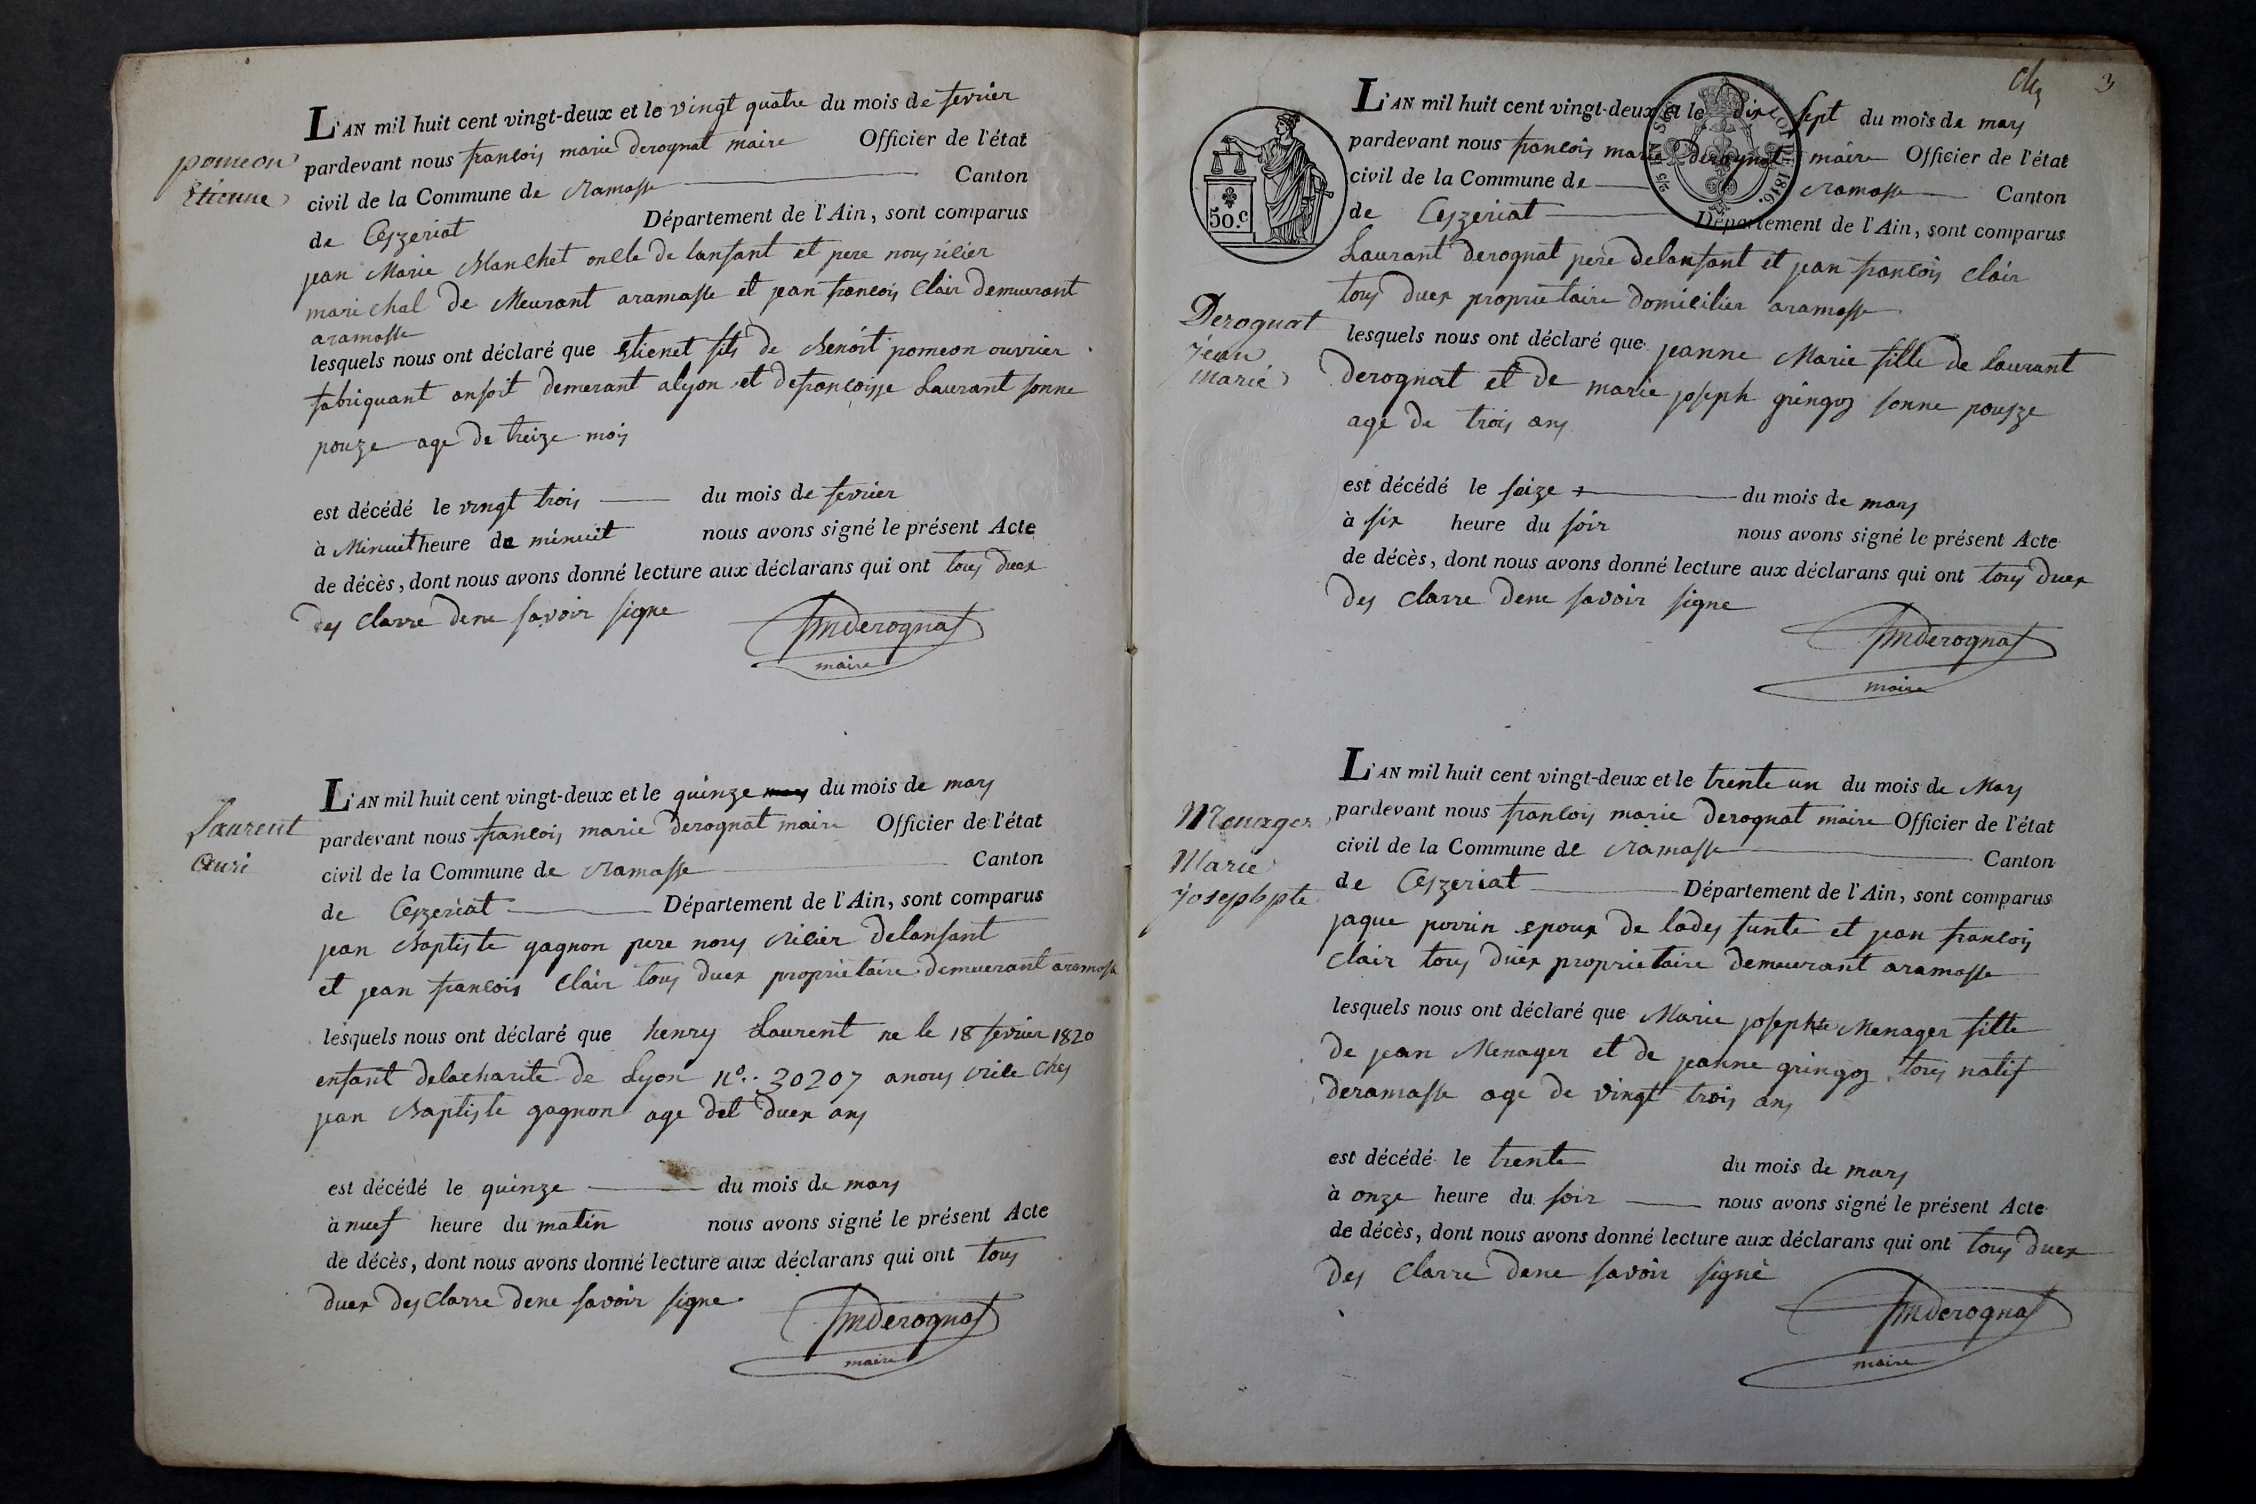 pomeon
Etienne
L'AN mil huit cent vingt-deux et le vingt quatre du mois de fevrier
pardevant nous francois marie derognat maire Officier de l'état
civil de la Commune de ramasse Canton
de Ceyzeriat Département de l'Ain, sont comparus
jean Marie Manchet oncle de lanfant et pere nourisier
marichal de Meurant aramasse et jean francois Clair demeurant
aramasse
lesquels nous ont déclaré que Etienet fils de Benoit pomeon ouvrier
fabriquant demerant alyon et defrancoisse Laurant
age de treize mois
est décédé le vingt trois du mois de fevrier
à Minuit heure de minuit nous avons signé le présent Acte
de décès, dont nous avons donné lecture aux déclarans qui ont tous duex
des clarre dene savoir signe
fmderognat
maire
Laurent
L'AN mil huit cent vingt-deux et le quinze du mois de mars
pardevant nous francois marie derognat maire Officier de l'état
civil de la Commune de ramasse Canton
de Ceyzeriat Département de l'Ain, sont comparus
jean Baptiste gagnon pere nous ricier delanfant
et jean francois Clair tous duex proprietaire demeurant aramasse
lesquels nous ont déclaré que henry Laurent ne le 18 fevrier 1820
enfant delacharite de Lyon n°. 30207 anous rice ches
jean Baptiste gagnon age det duex ans
est décédé le quinze du mois de mars
à nuef heure du matin nous avons signé le présent Acte
de décès, dont nous avons donné lecture aux déclarans qui ont tous
duex des clarre dene savoir signe
fmderognat
maire
3
50.c
1816.
Derognat
jean
marie
L'AN mil huit cent vingt-deux et le dix sept du mois de mars
pardevant nous francois marie derognat maire Officier de l'état
civil de la Commune de ramasse Canton
de Ceyzeriat Département de l'Ain, sont comparus
Laurant derognat pere delanfant et jean francois clair
tous duex proprietaire domicilier aramasse
lesquels nous ont déclaré que jeanne Marie fille de Laurant
derognat et de marie joseph gringoz
age de trois ans
est décédé le seize du mois de mars
à six heure du soir nous avons signé le présent Acte
de décès, dont nous avons donné lecture aux déclarans qui ont tous duex
des clarre dene savoir signe
fmderognat
maire
Menager
Marie
L'AN mil huit cent vingt-deux et le trente un du mois de Mars
pardevant nous francois marie derognat maire Officier de l'état
civil de la Commune de ramasse Canton
de Ceyzeriat Département de l'Ain, sont comparus
jaque perrin epoux de lades funte et jean francois
clair tous duex proprietaire demeurant aramasse
lesquels nous ont déclaré que Marie josephte Menager fille
de jean Menager et de jeanne gringoz tous natif
deramasse age de vingt trois ans
est décédé le trente du mois de mars
à onze heure du soir nous avons signé le présent Acte
de décès, dont nous avons donné lecture aux déclarans qui ont tous duex
des clarre dene savoir signé
fmderognat
maire